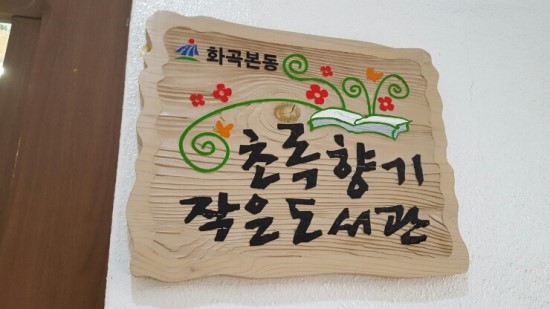 화곡본동
초록향기
작은도서관